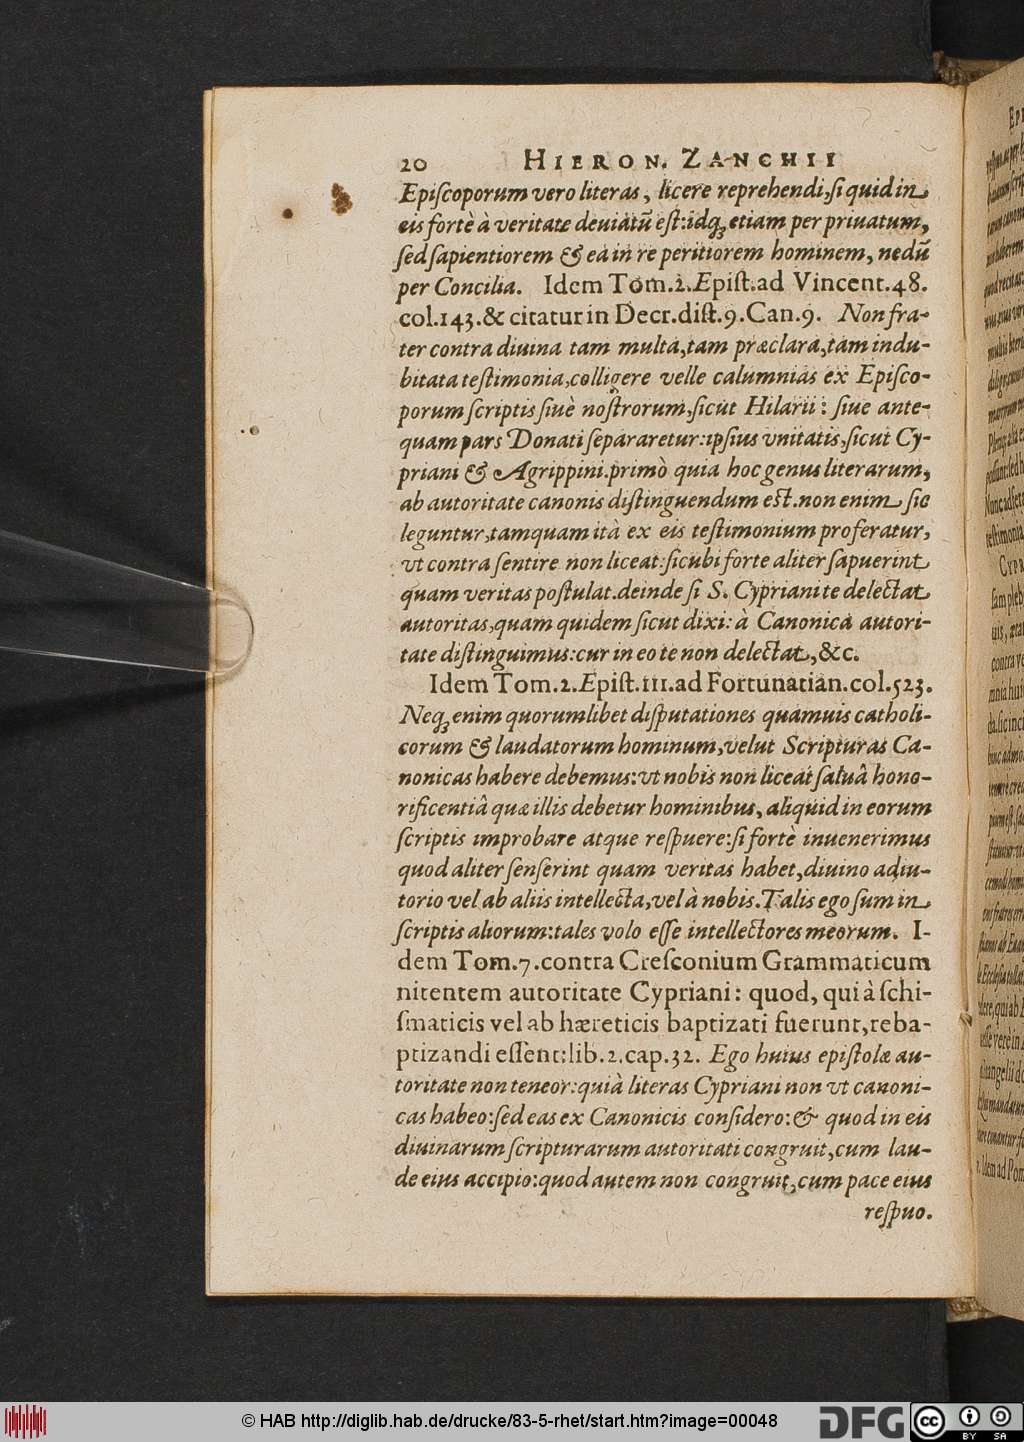 20 HIERON. ZANCHII
Epiſcoporum vero literas, licere reprehendi, ſi quid in
eis fortè à veritate deuiatũ eſt: idq́; etiam per priuatum,
ſed ſapientiorem & ea in re peritiorem hominem, nedũ
per Concilia. Idem Tom.2.Epiſt.ad Vincent.48.
col.143.& citatur in Decr.diſt.9.Can.9. Non fra-
ter contra diuina tam multa, tam præclara, tam indu-
bitata teſtimonia, colligere velle calumnias ex Epiſco-
porum ſcriptis ſiuè noſtrorum, ſicut Hilarii: ſiue ante-
quam pars Donati ſepararetur: ipſius vnitatis, ſicut Cy-
priani & Agrippini. primò quia hoc genus literarum,
ab autoritate canonis diſtinguendum eſt. non enim ſic
leguntur, tamquam ità ex eis teſtimonium proferatur,
vt contra ſentire non liceat: ſicubi forte aliter ſapuerint
quam veritas poſtulat. deinde ſi S. Cypriani te delectat
autoritas, quam quidem ſicut dixi: à Canonica autori-
tate diſtinguimus: cur in eo te non delectat, &c.
Idem Tom.2.Epiſt.111.ad Fortunatian.col.523.
Neq́; enim quorumlibet diſputationes quamuis catholi-
corum & laudatorum hominum, velut Scripturas Ca-
nonicas habere debemus: vt nobis non liceat ſaluâ hono-
rificentiâ quæ illis debetur hominibus, aliquid in eorum
ſcriptis improbare atque reſpuere: ſi fortè inuenerimus
quod aliter ſenſerint quam veritas habet, diuino adiu-
torio vel ab aliis intellecta, vel à nobis. Talis ego ſum in
ſcriptis aliorum: tales volo eſſe intellectores meorum. I-
dem Tom.7.contra Creſconium Grammaticum
nitentem autoritate Cypriani: quod, qui à ſchi-
ſmaticis vel ab hæreticis baptizati fuerunt, reba-
ptizandi eſſent: lib.2.cap.32. Ego huius epiſtolæ au-
toritate non teneor: quià literas Cypriani non vt canoni-
cas habeo: ſed eas ex Canonicis conſidero: & quod in eis
diuinarum ſcripturarum autoritati congruit, cum lau-
de eius accipio: quod autem non congruit, cum pace eius
reſpuo.
© HAB http://diglib.hab.de/drucke/83-5-rhet/start.htm?image=00048
DFG
cc BY SA